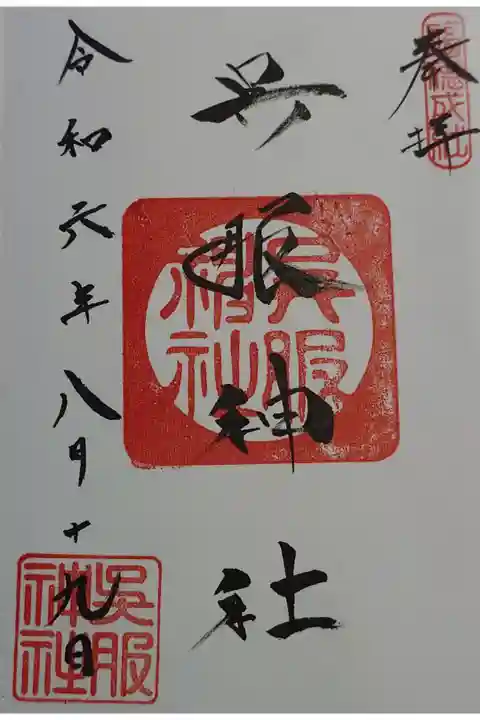 奉拝
呉服神社
呉服
神社
令和元年八月十九日
呉服
神社